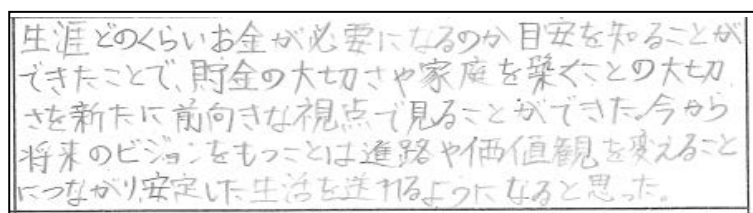 生涯どのくらいお金が必要になるのか目安を知ることが
できたことで、貯金の大切さや家庭を築くことの大切
さを新たに前向きな視点で見ることができた。今から
将来のビジョンをもつことは進路や価値観を変えること
につながり、安定した生活を送れるようになると思った。